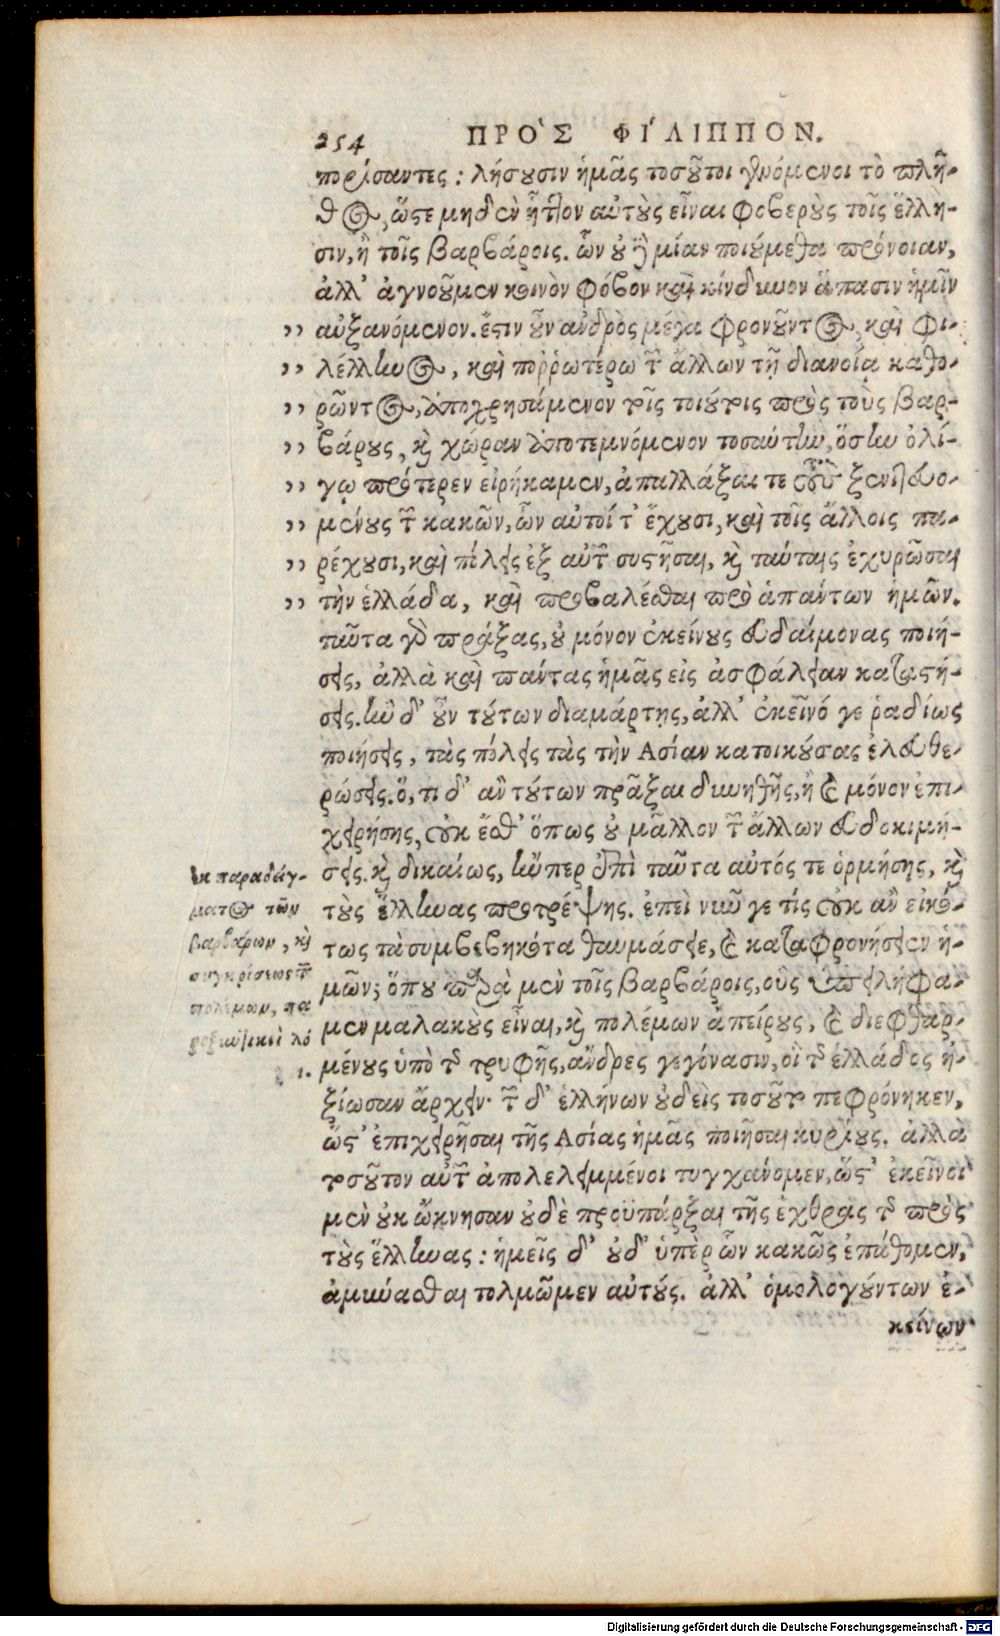 254 ΠΡΟ`Σ ΦΙ´ΛΙΠΠΟΝ.
πορίσαντες: λήσουσιν ἡμᾶς τοσοῦτοι γενόμενοι τὸ πλῆ-
θος, ὥστε μηδὲν ἧττον αὐτοὺς εἶναι φοβεροὺς τοῖς ἕλλη-
σιν, ἢ τοῖς βαρβάροις. ὧν οὐδὲ μίαν ποιούμεθα πρόνοιαν,
ἀλλ' ἀγνοοῦμεν κοινὸν φόβον καὶ κίνδυνον ἅπασιν ἡμῖν
,, αὐξανόμενον. ἔστιν οὖν ἀνδρὸς μέγα φρονοῦντος, καὶ φι-
,, λέλληνος, καὶ ποῤῥωτέρω τῶν ἄλλων τῇ διανοίᾳ καθο-
,, ρῶντος, ἀποχρησάμενον τοῖς τοιούτοις πρὸς τοὺς βαρ-
,, βάρους, καὶ χώραν ἀποτεμνόμενον τοσαύτην, ὅσην ὀλί-
,, γῳ πρότερεν εἰρήκαμεν, ἀπαλλάξαι τε τοὺς ξενιτευο-
,, μένους τῶν κακῶν, ὧν αὐτοί τ' ἔχουσι, καὶ τοῖς ἄλλοις πα-
,, ρέχουσι, καὶ πόλεις ἐξ αὐτῶν συστῆσαι, καὶ ταύταις ἐχυρῶσαι
,, τὴν ἑλλάδα, καὶ προβαλέσθαι πρὸ ἁπάντων ἡμῶν.
ταῦτα γὰρ πράξας, οὐ μόνον ἐκείνους εὐδαίμονας ποιή-
σεις, ἀλλὰ καὶ πάντας ἡμᾶς εἰς ἀσφάλειαν καταστή-
σεις. ἢν δ' οὖν τούτων διαμάρτῃς, ἀλλ' ἐκεῖνό γε ῥαδίως
ποιήσεις, τὰς πόλεις τὰς τὴν Ἀσίαν κατοικούσας ἐλευθε-
ρώσεις. ὅ, τι δ' ἂν τούτων πρᾶξαι δυνηθῇς, ἢ καὶ μόνον ἐπι-
χειρήσῃς, οὐκ ἔσθ' ὅπως οὐ μᾶλλον τῶν ἄλλων εὐδοκιμή-
σεις. καὶ δικαίως, ἤνπερ ἐπὶ ταῦτα αὐτός τε ὁρμήσῃς, καὶ
τοὺς ἕλληνας προτρέψῃς. ἐπεὶ νῦν γε τίς οὐκ ἂν εἰκό-
τως τὰ συμβεβηκότα θαυμάσειε, καὶ καταφρονήσειεν ἡ-
μῶν; ὅπου παρὰ μὲν τοῖς βαρβάροις, οὓς ὑπειλήφα-
μεν μαλακοὺς εἶναι, καὶ πολέμων ἀπείρους, καὶ διεφθαρ-
μένους ὑπὸ τῆς τρυφῆς, ἄνδρες γεγόνασιν, οἳ τῆς ἑλλάδος ἠ-
ξίωσαν ἄρχειν· τῶν δ' ἑλλήνων οὐδεὶς τοσοῦτο πεφρόνηκεν,
ὥστ' ἐπιχειρῆσαι τῆς Ἀσίας ἡμᾶς ποιῆσαι κυρίους. ἀλλὰ
τοσοῦτον αὐτῶν ἀπολελειμμένοι τυγχάνομεν, ὥστ' ἐκεῖνοι
μὲν οὐκ ὤκνησαν οὐδὲ προϋπάρξαι τῆς ἔχθρας τῆς πρὸς
τοὺς ἕλληνας: ἡμεῖς δ' οὐδ' ὑπὲρ ὧν κακῶς ἐπάθομεν,
ἀμύνασθαι τολμῶμεν αὐτούς. ἀλλ' ὁμολογούντων ἐ-
κείνων
Ἐκ παραδείγ-
ματος τῶν
βαρβάρων, καὶ
συγκρίσεως τῶν
πολέμων, πα
ροξυντικοὶ λό
γοι.
Digitalisierung gefördert durch die Deutsche Forschungsgemeinschaft - DFG